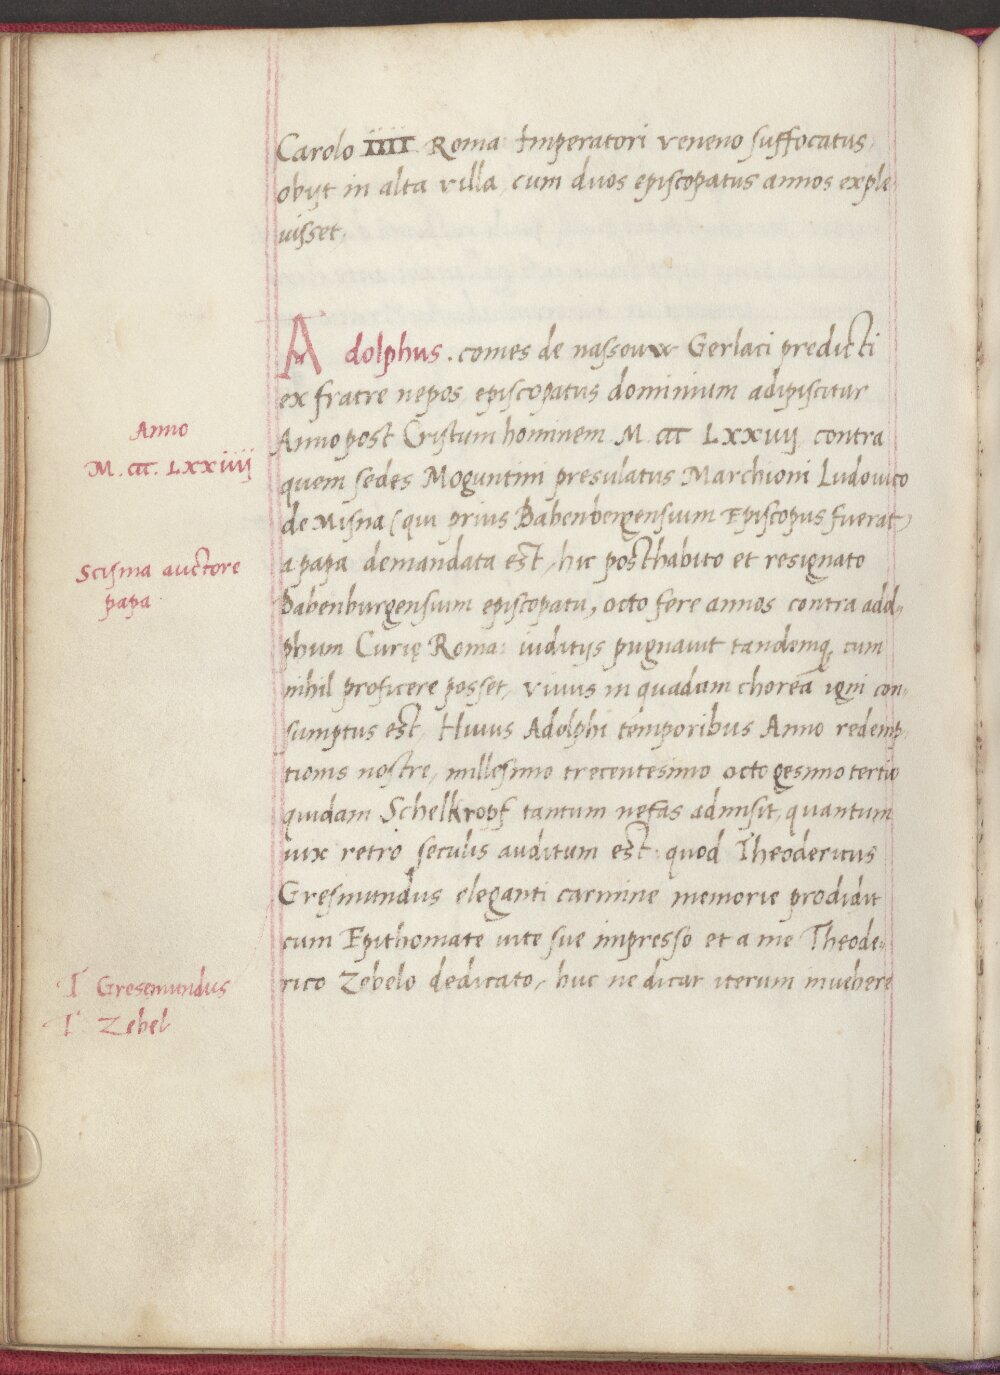 Carolo IIII Roma: Imperatori veneno suffocatus,
obijt in alta villa, cum duos episcopatus annos exple
uisset,
Adolphus . comes de nassouw Gerlaci predicti
ex fratre nepos, episcopatus dominium adipiscitur
Anno
Anno post Cristum hominem M. ccc LXXiiij contra
M. ccc. LXXiiij
quem sedes Moguntini presulatus Marchioni Ludouico
de Misna (qui prius Babenbergensium Episcopus fuerat)
Scisma auctore
a papa demandata est, hic posthabito et resignato
papa
Babenburgensium episcopatu, octo fere annos contra adol-
phum Curię Roma: iuditijs pugnauit tandemq, cum
nihil proficere posset, viuus in quadam chorea igni con-
sumptus est, Huius Adolphi temporibus Anno redemp
tionis nostre, millesimo trecentesimo octogesimo tertio
quidam Schelkropf tantum nefas admisit, quantum
uix retro seculis auditum est: quod Theodericus
Gresmundus eleganti carmine memorie prodidit
cum Epithomate uite sue impresso et a me Theode-
T Gresemundus
rico Zobelo dedicato, huc ne dicar iterum inuehere
T Zebel